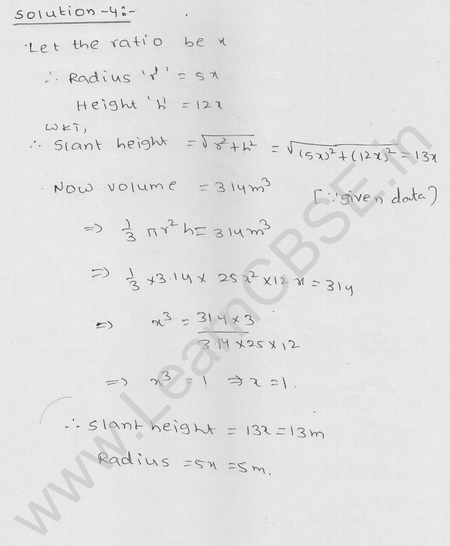 Solution-4:-
Let the ratio be x
∴ Radius 'r' = 5x
Height 'h' = 12x
WKT,
∴ Slant height = √r²+h² = √(5x)²+(12x)² = 13x
Now volume = 314m³ [∵ given data)
⇒ 1/3 πr²h = 314m³
⇒ 1/3 × 3.14 × 25x² × 12x = 314
⇒ x³ = 314×3 / 3.14×25×12
⇒ x³ = 1 ⇒ x = 1.
∴ Slant height = 13x = 13m
Radius = 5x = 5m.
www.LearnCBSE.in